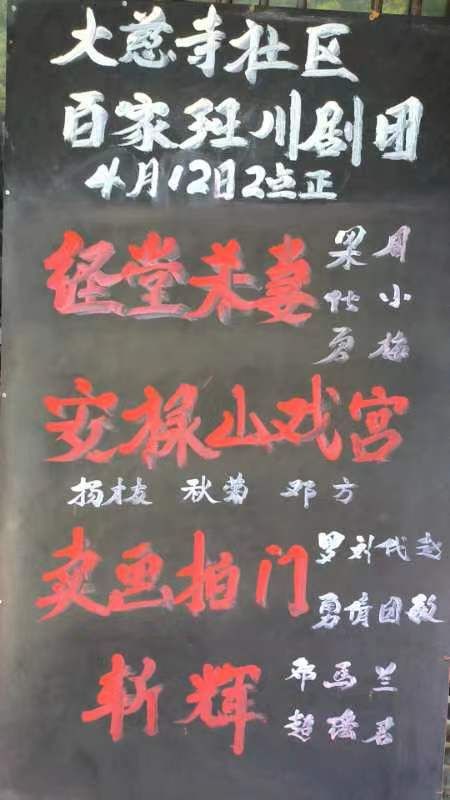 大慈寺社区
百家班川剧团
4月12日2点正
经堂杀妻
周小梅
果
勇
安禄山戏宫
杨枝 秋菊 邓方
卖画拍门
罗刘代赵
勇倩团敏
斩辉
邓马兰
超瑶君